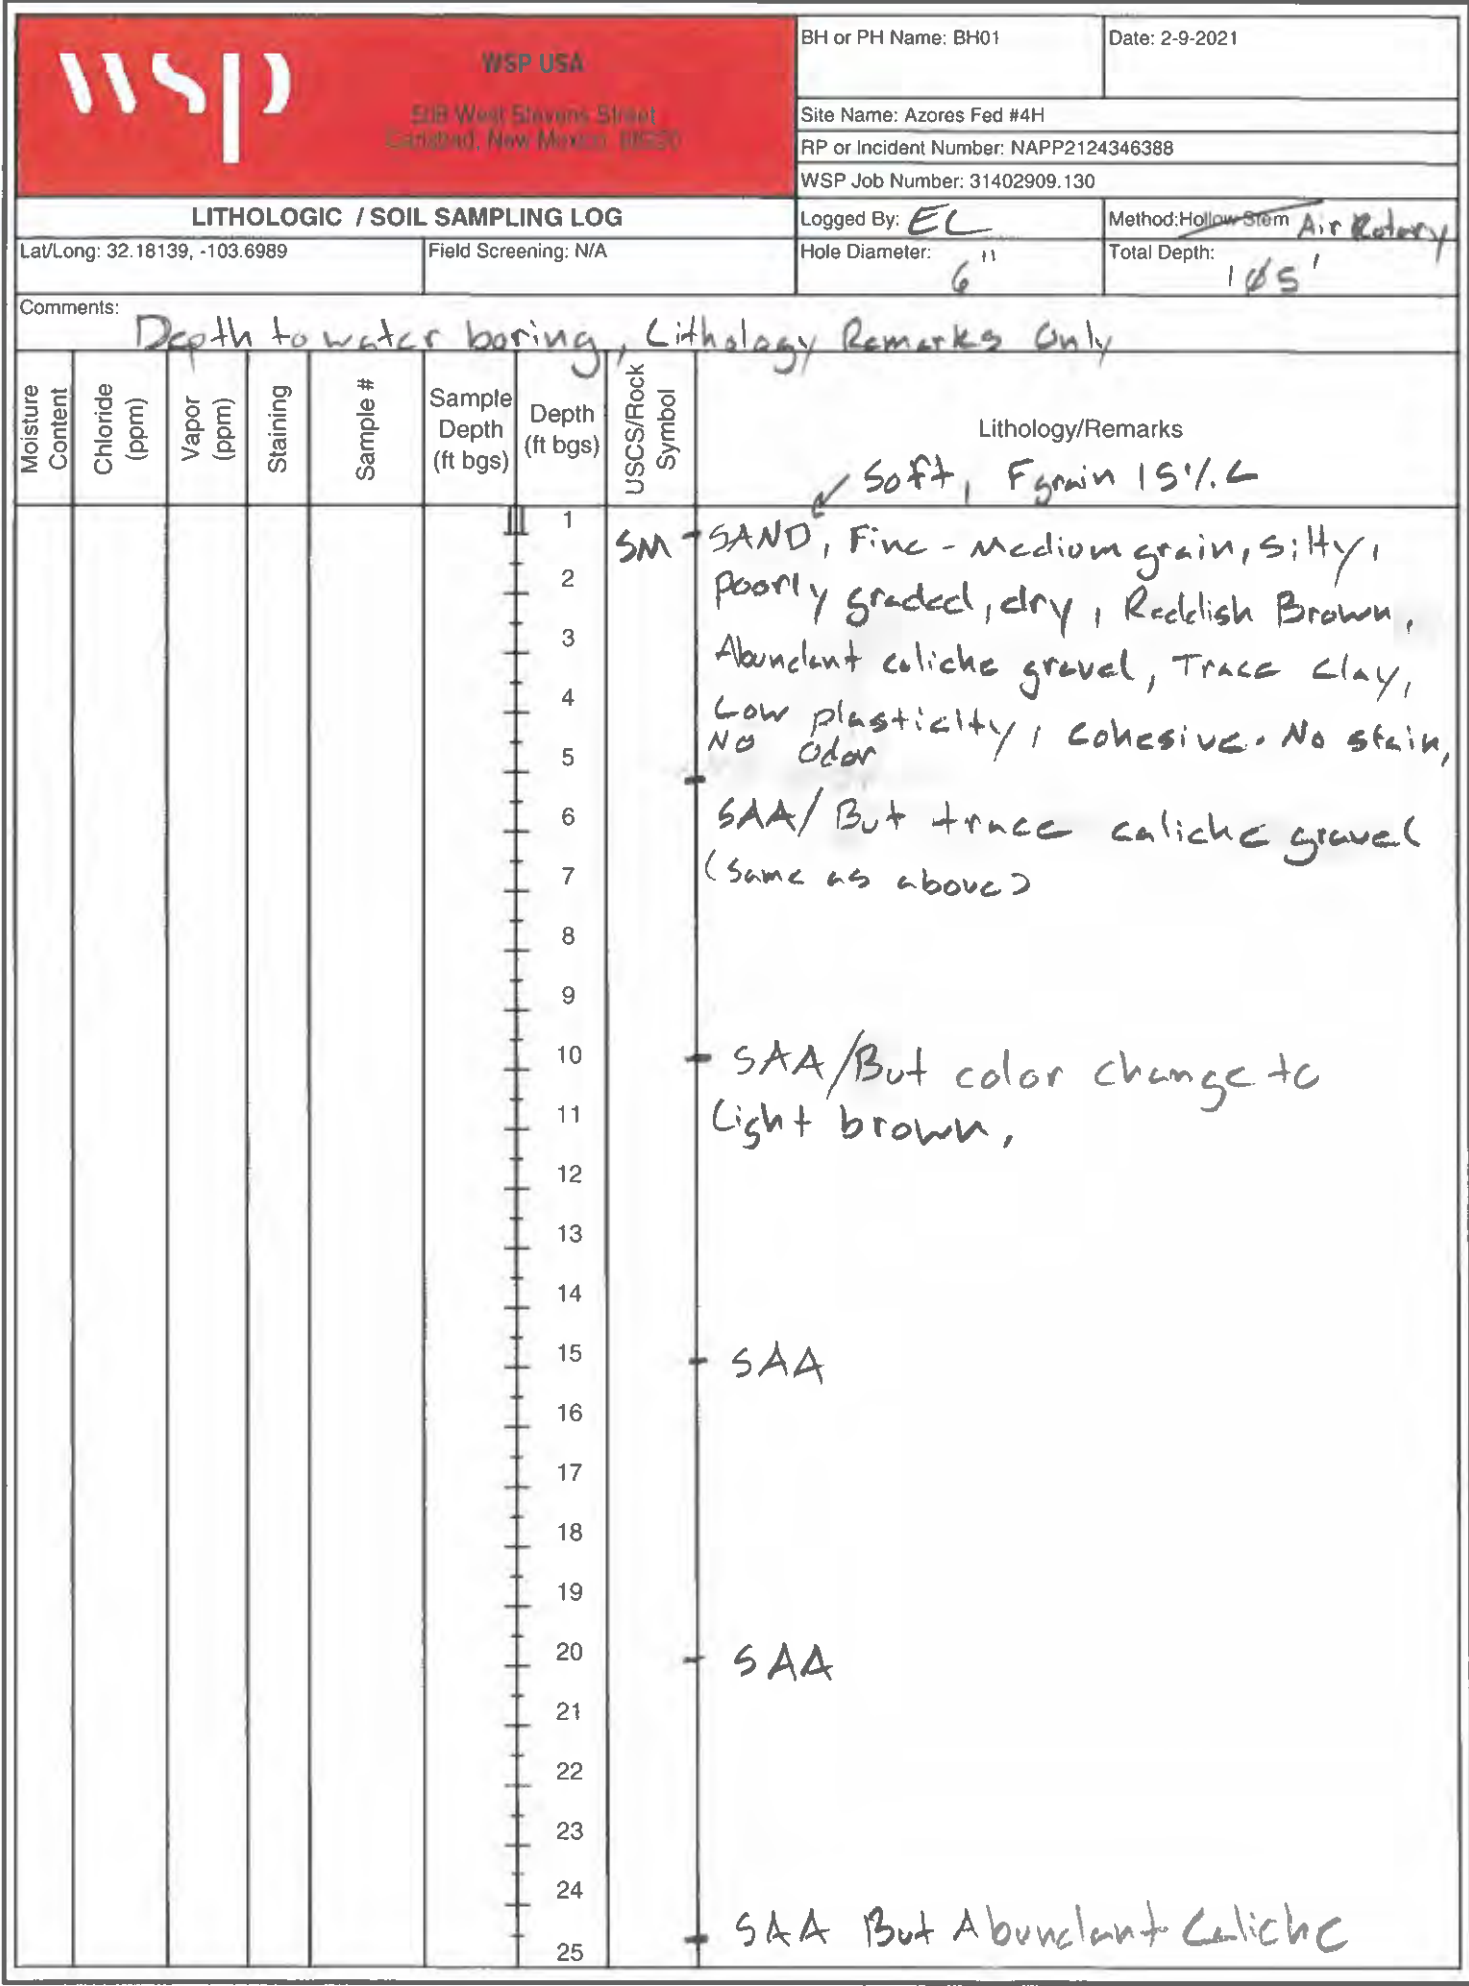 wsp
WSP USA
508 West Stevens Street
Carlsbad, New Mexico, 88220
BH or PH Name: BH01
Date: 2-9-2021
Site Name: Azores Fed #4H
RP or Incident Number: NAPP2124346388
WSP Job Number: 31402909.130
LITHOLOGIC / SOIL SAMPLING LOG
Logged By: EL
Method: Hollow Stem Air Rotary
Lat/Long: 32.18139, -103.6989
Field Screening: N/A
Hole Diameter: 6"
Total Depth: 105'
Comments: Depth to water boring, Lithology Remarks Only
Moisture Content
Chloride (ppm)
Vapor (ppm)
Staining
Sample #
Sample Depth (ft bgs)
Depth (ft bgs)
USCS/Rock Symbol
Lithology/Remarks
Soft, F grain 15%
1
SM
SAND, Fine - Medium grain, silty,
2
poorly graded, dry, Reddish Brown,
3
Abundant caliche gravel, Trace clay,
4
Low plasticity, cohesive. No stain,
No Odor
5
6
SAA/But trace caliche gravel
7
(same as above)
8
9
10
SAA/But color change to
11
Light brown,
12
13
14
15
SAA
16
17
18
19
20
SAA
21
22
23
24
25
SAA But Abundant Caliche